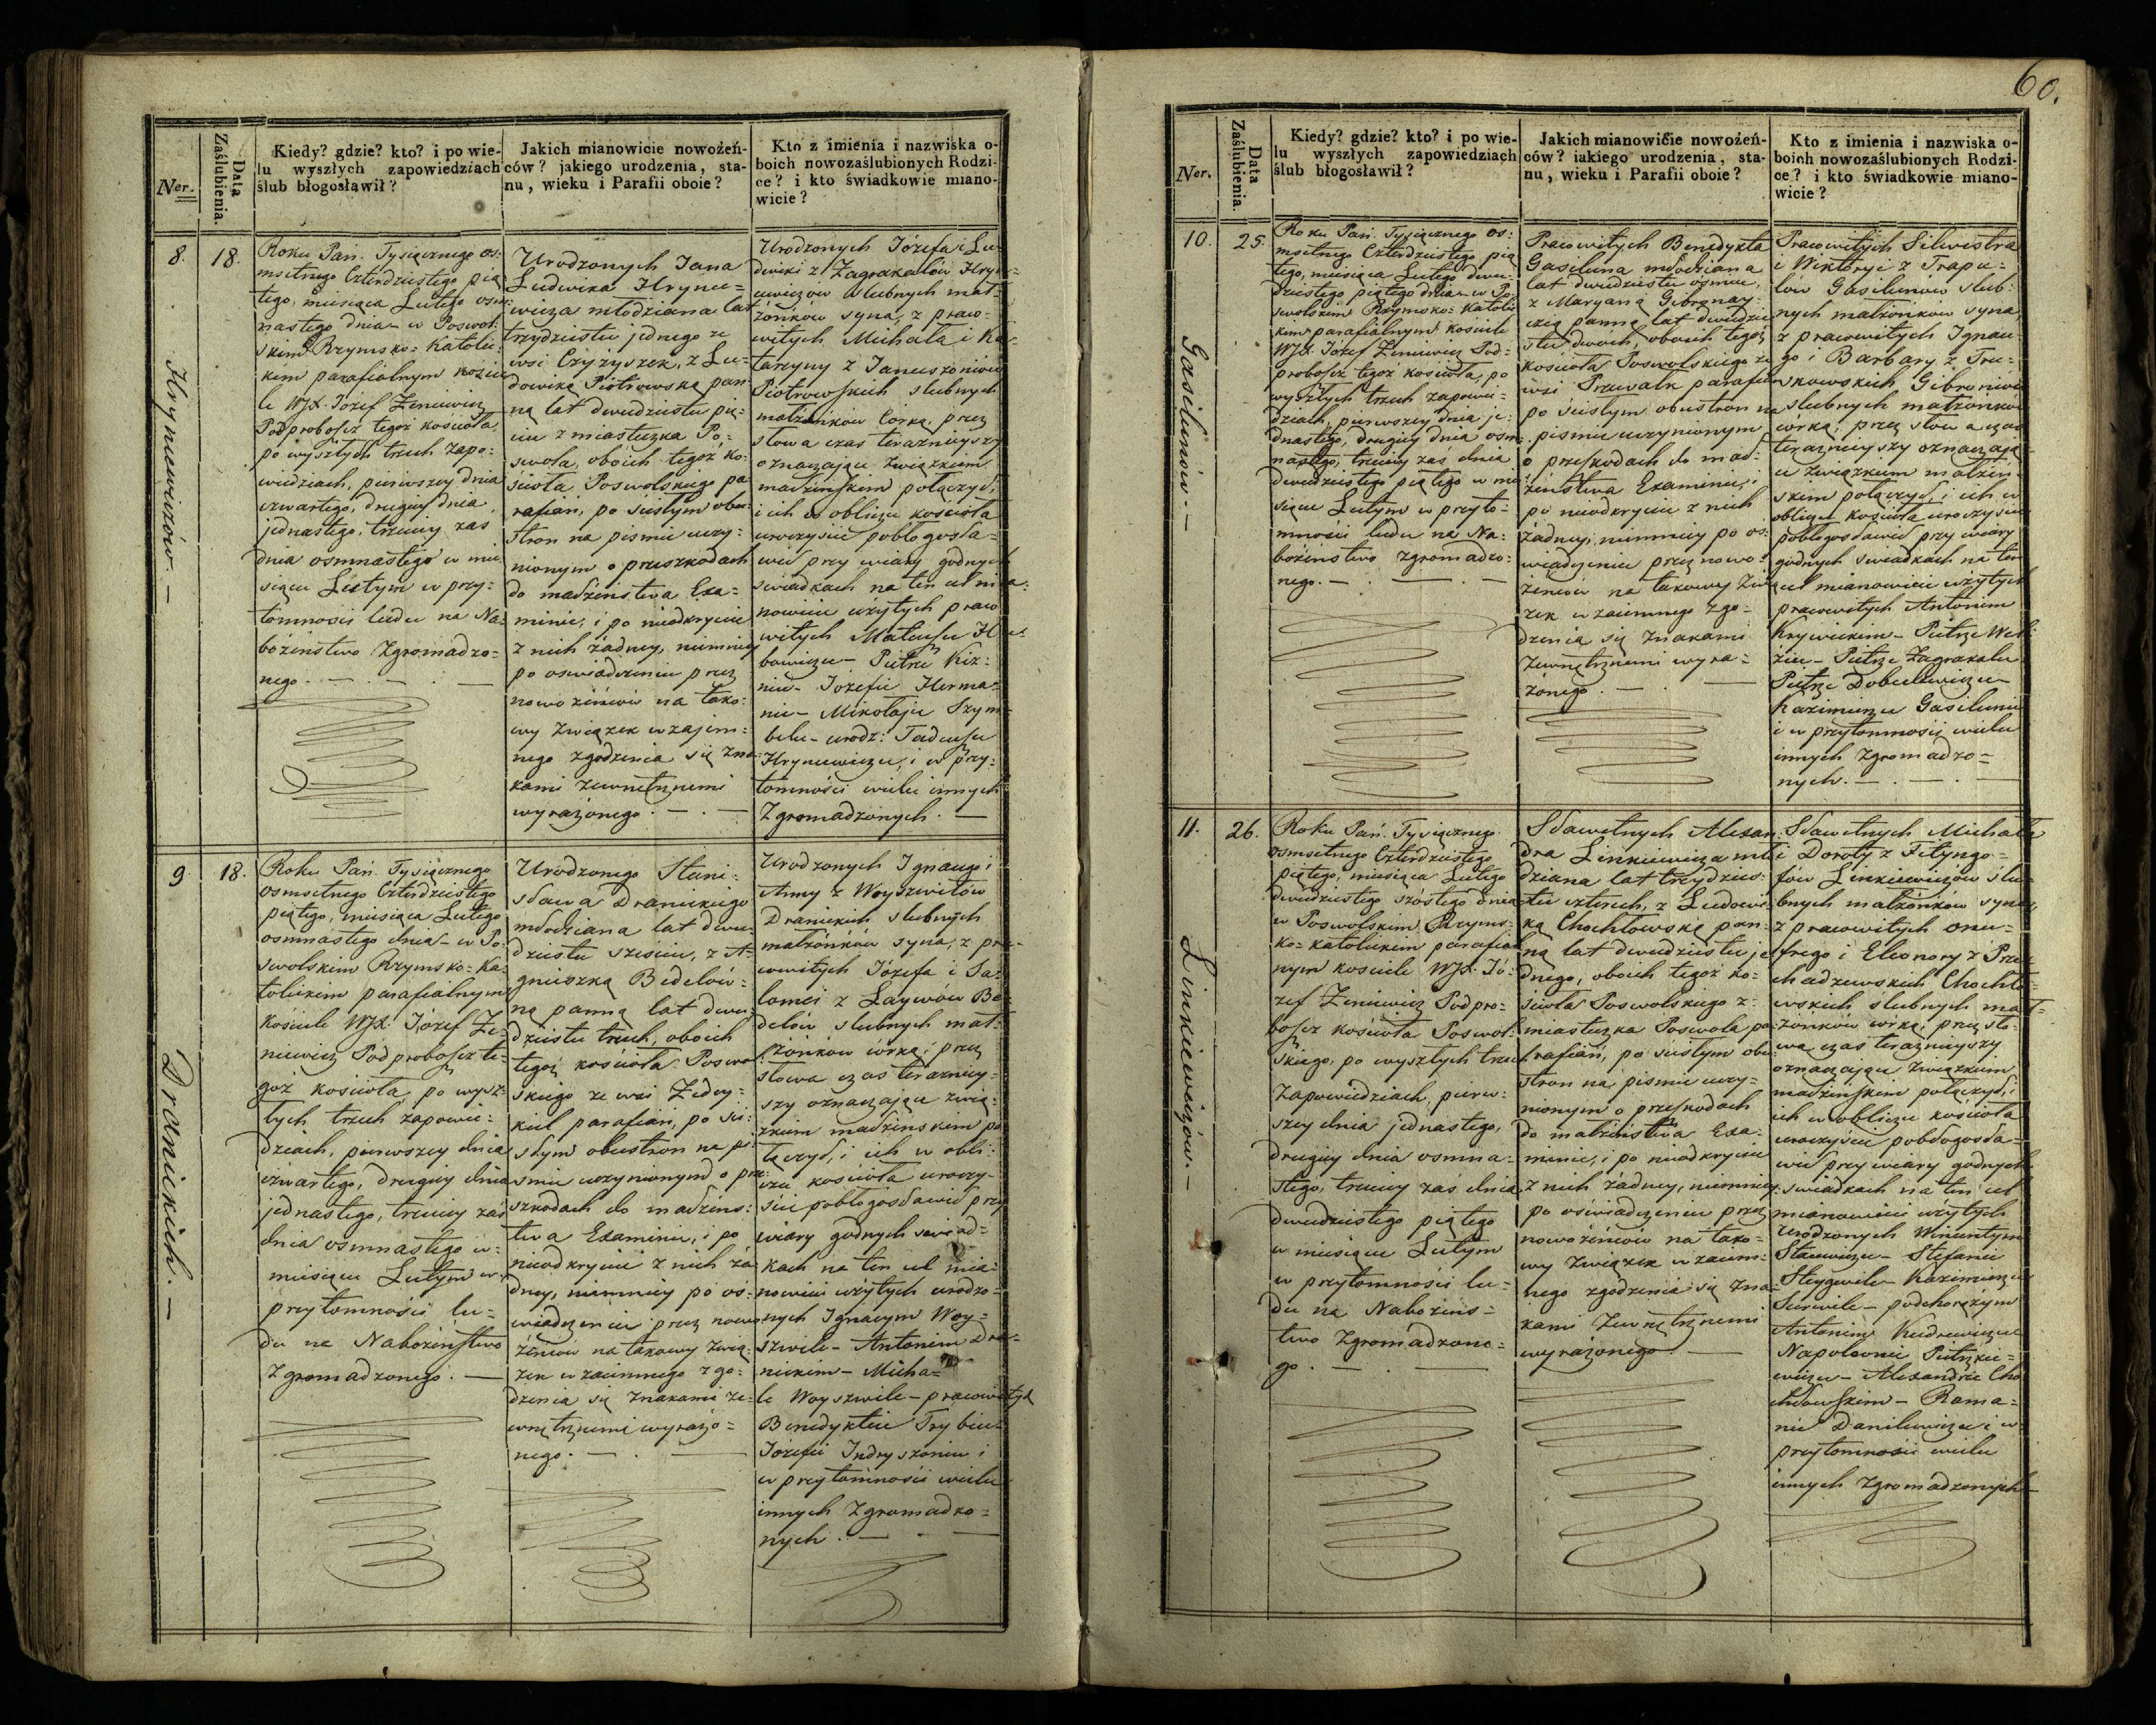 60.
Ner.
Data
Zaślubienia.
Kiedy? gdzie? kto? i po wie-
lu wyszłych zapowiedziach
ślub błogosławił?
Jakich mianowicie nowożeń-
ców? jakiego urodzenia, sta-
nu, wieku i Parafii oboie?
Kto z imienia i nazwiska o-
boich nowozaślubionych Rodzi-
ce? i kto świadkowie miano-
wicie?
8.
18.
Hryncewiczów. —
Roku Pań. Tysiącznego os:
msetnego Czterdziestego pią
tego, miesiąca Lutego osm:
nastego dnia — w Poswol:
skim Rzymsko = Katolic:
kim parafialnym koście
le WJX. Józef Zeniewicz
Podproboszcz tegoż kościoła,
po wyszłych trzech zapo:
wiedziach, pierwszey dnia
czwartego, drugiey dnia
jednastego, trzeciey zaś
dnia osmnastego w mie
siącu Lutym w przy:
tomności ludu na Na:
bożeństwo zgromadzo=
nego. — . —
Urodzonych Jana
Ludwika Hrynce=
wicza młodziana lat
trzydziestu jednego ze
wsi Czyżyszek, z Lu=
dowiką Piotrowską pan
ną lat dwudziestu pię=
ciu z miasteczka Po:
swola, oboich tegoż ko:
ścioła Poswolskiego pa
rafian, po ścisłym obu=
stron na piśmie uczy:
nionym o przeszkodach
do małżeństwa Exa=
minie, i po nieodkryciu
z nich żadney, niemniey
po oświadczeniu przez
nowożeńców na tako:
wy związek wzajem:
nego zgodzenia się zna:
kami zewnętrznemi
wyrażonego. — . —
Urodzonych Józefa i Lu
dwiki z Zagrakałów Hryn=
cewiczów ślubnych mał:
żonków syna, z praco=
witych Michała i Ka=
tarzyny z Januszoniów
Piotrowskich ślubnych
małżonków Corką, przez
słowa czas teraznieyszy
oznaczające związkiem
małżeńskim połączył,
i ich w obliczu kościoła
uroczyście pobłogosła=
wił przy wiary godnych
świadkach na ten cel mia:
nowicie użytych praco
witych Mateuszu
bowiczu — Piotrze Kiz:
niu — Jozefie Herma=
nie — Mikołaju Szym=
belu — urodz: Tadeuszu
Hryncewiczu, i w przy:
tomności wielu innych
Zgromadzonych. —
9
18.
Dranickich. —
Roku Pań. Tysiącznego
osmsetnego Czterdziestego
piątego, miesiąca Lutego
osmnastego dnia — w Po:
swolskim Rzymsko = Ka=
tolickim parafialnym
Kościele WJX. Józef Ze=
niewicz Podproboszcz te=
goż kościoła po wysz=
łych trzech zapowie=
dziach, pierwszey dnia
czwartego, drugiey dnia
jednastego, trzeciey zaś
dnia osmnastego w
miesiącu Lutym w
przytomności lu=
du na Nabożeństwo
Zgromadzonego. —
Urodzonego Stani:
sława Dranickiego
młodziana lat dwu
dziestu sześciu, z A=
gnieszką Bedelów=
ną panną lat dwu
dziestu trzech, oboich
tegoż kościoła Poswo
skiego ze wsi Zedey=
kiel parafian, po ści:
słym obustron na pi
śmie uczynionym o prze:
szkodach do małżeńs:
twa Examinie, i po
nieodkryciu z nich ża
dney, niemniey po oś:
wiadczeniu przez nowo
żeńców na takowy zwią
zek wzaiemnego zgo:
dzenia się znakami ze=
wnętrznemi wyrażo=
nego. — . —
Urodzonych Ignacego i
Anny z Woyszwiłłów
Dranickich ślubnych
małżonków syna, z pra=
cowitych Józefa i Sa=
lomei z Laywów Be=
delów ślubnych mał=
żonków córką, przez
słowa czas teraźniey=
szy oznaczające zwią=
zkiem małżeńskim po
łączył, i ich w obli:
czu kościoła uroczy=
ście pobłogosławił przy
wiary godnych świad=
kach na ten cel mia:
nowicie użytych urodzo=
nych Ignacym Woy=
szwile — Antonim Dra=
nickim — Micha=
le Woyszwile — pracowitych
Benedykcie Trybie
Józefie Indryszoniu i
w przytomności wielu
innych Zgromadzo=
nych. — . —
Ner.
Data
Zaślubienia.
Kiedy? gdzie? kto? i po wie-
lu wyszłych zapowiedziach
ślub błogosławił?
Jakich mianowicie nowożeń-
ców? iakiego urodzenia, sta-
nu, wieku i Parafii oboie?
Kto z imienia i nazwiska o-
boich nowozaślubionych Rodzi-
ce? i kto świadkowie miano-
wicie?
10.
25.
Gasilunów. —
Roku Pań. Tysiącznego os:
msetnego Czterdziestego pią
tego, miesiąca Lutego dwu:
dziestego piątego dnia — w Po
swolskim Rzymsko = Katolic
kim parafialnym Kościele
WJX. Józef Zeniewicz Pod=
proboszcz tegoż kościoła, po
wyszłych trzech zapowie=
dziach, pierwszey dnia je:
dnastego, drugiey dnia osm:
nastego, trzeciey zaś dnia
dwudziestego piątego w mie
siącu Lutym w przyto=
mności ludu na Na:
bożeństwo zgromadzo=
nego. — . — . —
Pracowitych Benedykta
Gasiluna młodziana
lat dwudziestu ośmiu,
z Maryaną Gibronay:
cią panną lat dwudzie
stu dwóch, oboich tegoż
kościoła Poswolskiego ze
wsi Przewałk parafian
po ścisłym obustron na
piśmie uczynionym
o przeszkodach do mał:
żeństwa Examinie, i
po nieodkryciu z nich
żadney, niemniey po oś:
wiadczeniu przez nowo
żeńców na takowy zwią
zek wzaiemnego zgo=
dzenia się znakami
zewnętrznemi wyra=
żonego. — . —
Pracowitych Silwestra
i Wiktoryi z Trapu=
łów Gasilunów ślub:
nych małżonków syna,
z pracowitych Ignac
go i Barbary z Tru=
skowskich Gibroniów
ślubnych małżonków
córką; przez słowa czas
teraznieyszy oznaczają
ce związkiem małżeń
skim połączył, i ich w
obliczu kościoła uroczyście
pobłogosławił przy wiary
godnych świadkach na ten
cel mianowicie użytych
pracowitych Antonim
Krywickim — Piotrze
— Piotrze Zagrakalu
Piotrze Dobulewiczu —
Kazimierzu Gasilunie
i w przytomności wielu
innych zgromadzo=
nych. — . —
11.
26.
Linkiewiczów. —
Roku Pań. Tysiącznego
osmsetnego Czterdziestego
piątego, miesiąca Lutego
dwudziestego szóstego dnia
w Poswolskim Rzyms:
ko = katolickim parafial
nym kościele WJX. Jó:
zef Zeniewicz Podpro=
boszcz kościoła Poswol:
skiego, po wyszłych trzech
Zapowiedziach, pierw:
szey dnia jednastego,
drugiey dnia osmna=
stego, trzeciey zaś dnia
dwudziestego piątego
w miesiącu Lutym
w przytomności lu=
du na Nabożeńs=
two Zgromadzone=
go. — . —
Sławetnych Alexan
dra Linkiewicza mło
dziana lat trzydzies:
tu czterech, z Ludowi
ką Chochłowską pan:
ną lat dwudziestu je
dnego, oboich tegoż ko=
ścioła Poswolskiego z
miasteczka Poswola pa
rafian, po ścisłym obu
stron na piśmie uczy=
nionym o przeszkodach
do małżeństwa Exa:
minie, i po nieodkryciu
z nich żadney, niemniey
po oświadczeniu przez
nowożeńców na tako=
wy związek wzaiem:
nego zgodzenia się zna=
kami zewnętrznemi
wyrażonego. —
Sławetnych Michała
i Doroty z Fityngo=
fów Linkiewiczów ślu=
bnych małżonków syna,
z pracowitych onu=
frego i Eleonory z Prze
chadzewskich Chochło=
wskich ślubnych mał=
żonków córką, przez sło=
wa czas teraznieyszy
oznaczające związkiem
małżeńskim połączył, i
ich w obliczu kościoła
uroczyście pobłogosła=
wił przy wiary godnych
świadkach na ten cel
mianowicie użytych
urodzonych Wincentym
Stacewiczu — Stefanie
Steygwile — Kazimierzu
Surwile — podchorążym
Antonim Kudrewiczu
Napoleonie Pietrzkie=
wiczu — Alexandrze Cho
chłowskim — Roma=
nie Danilewiczu i w
przytomności wielu
innych Zgromadzonych —